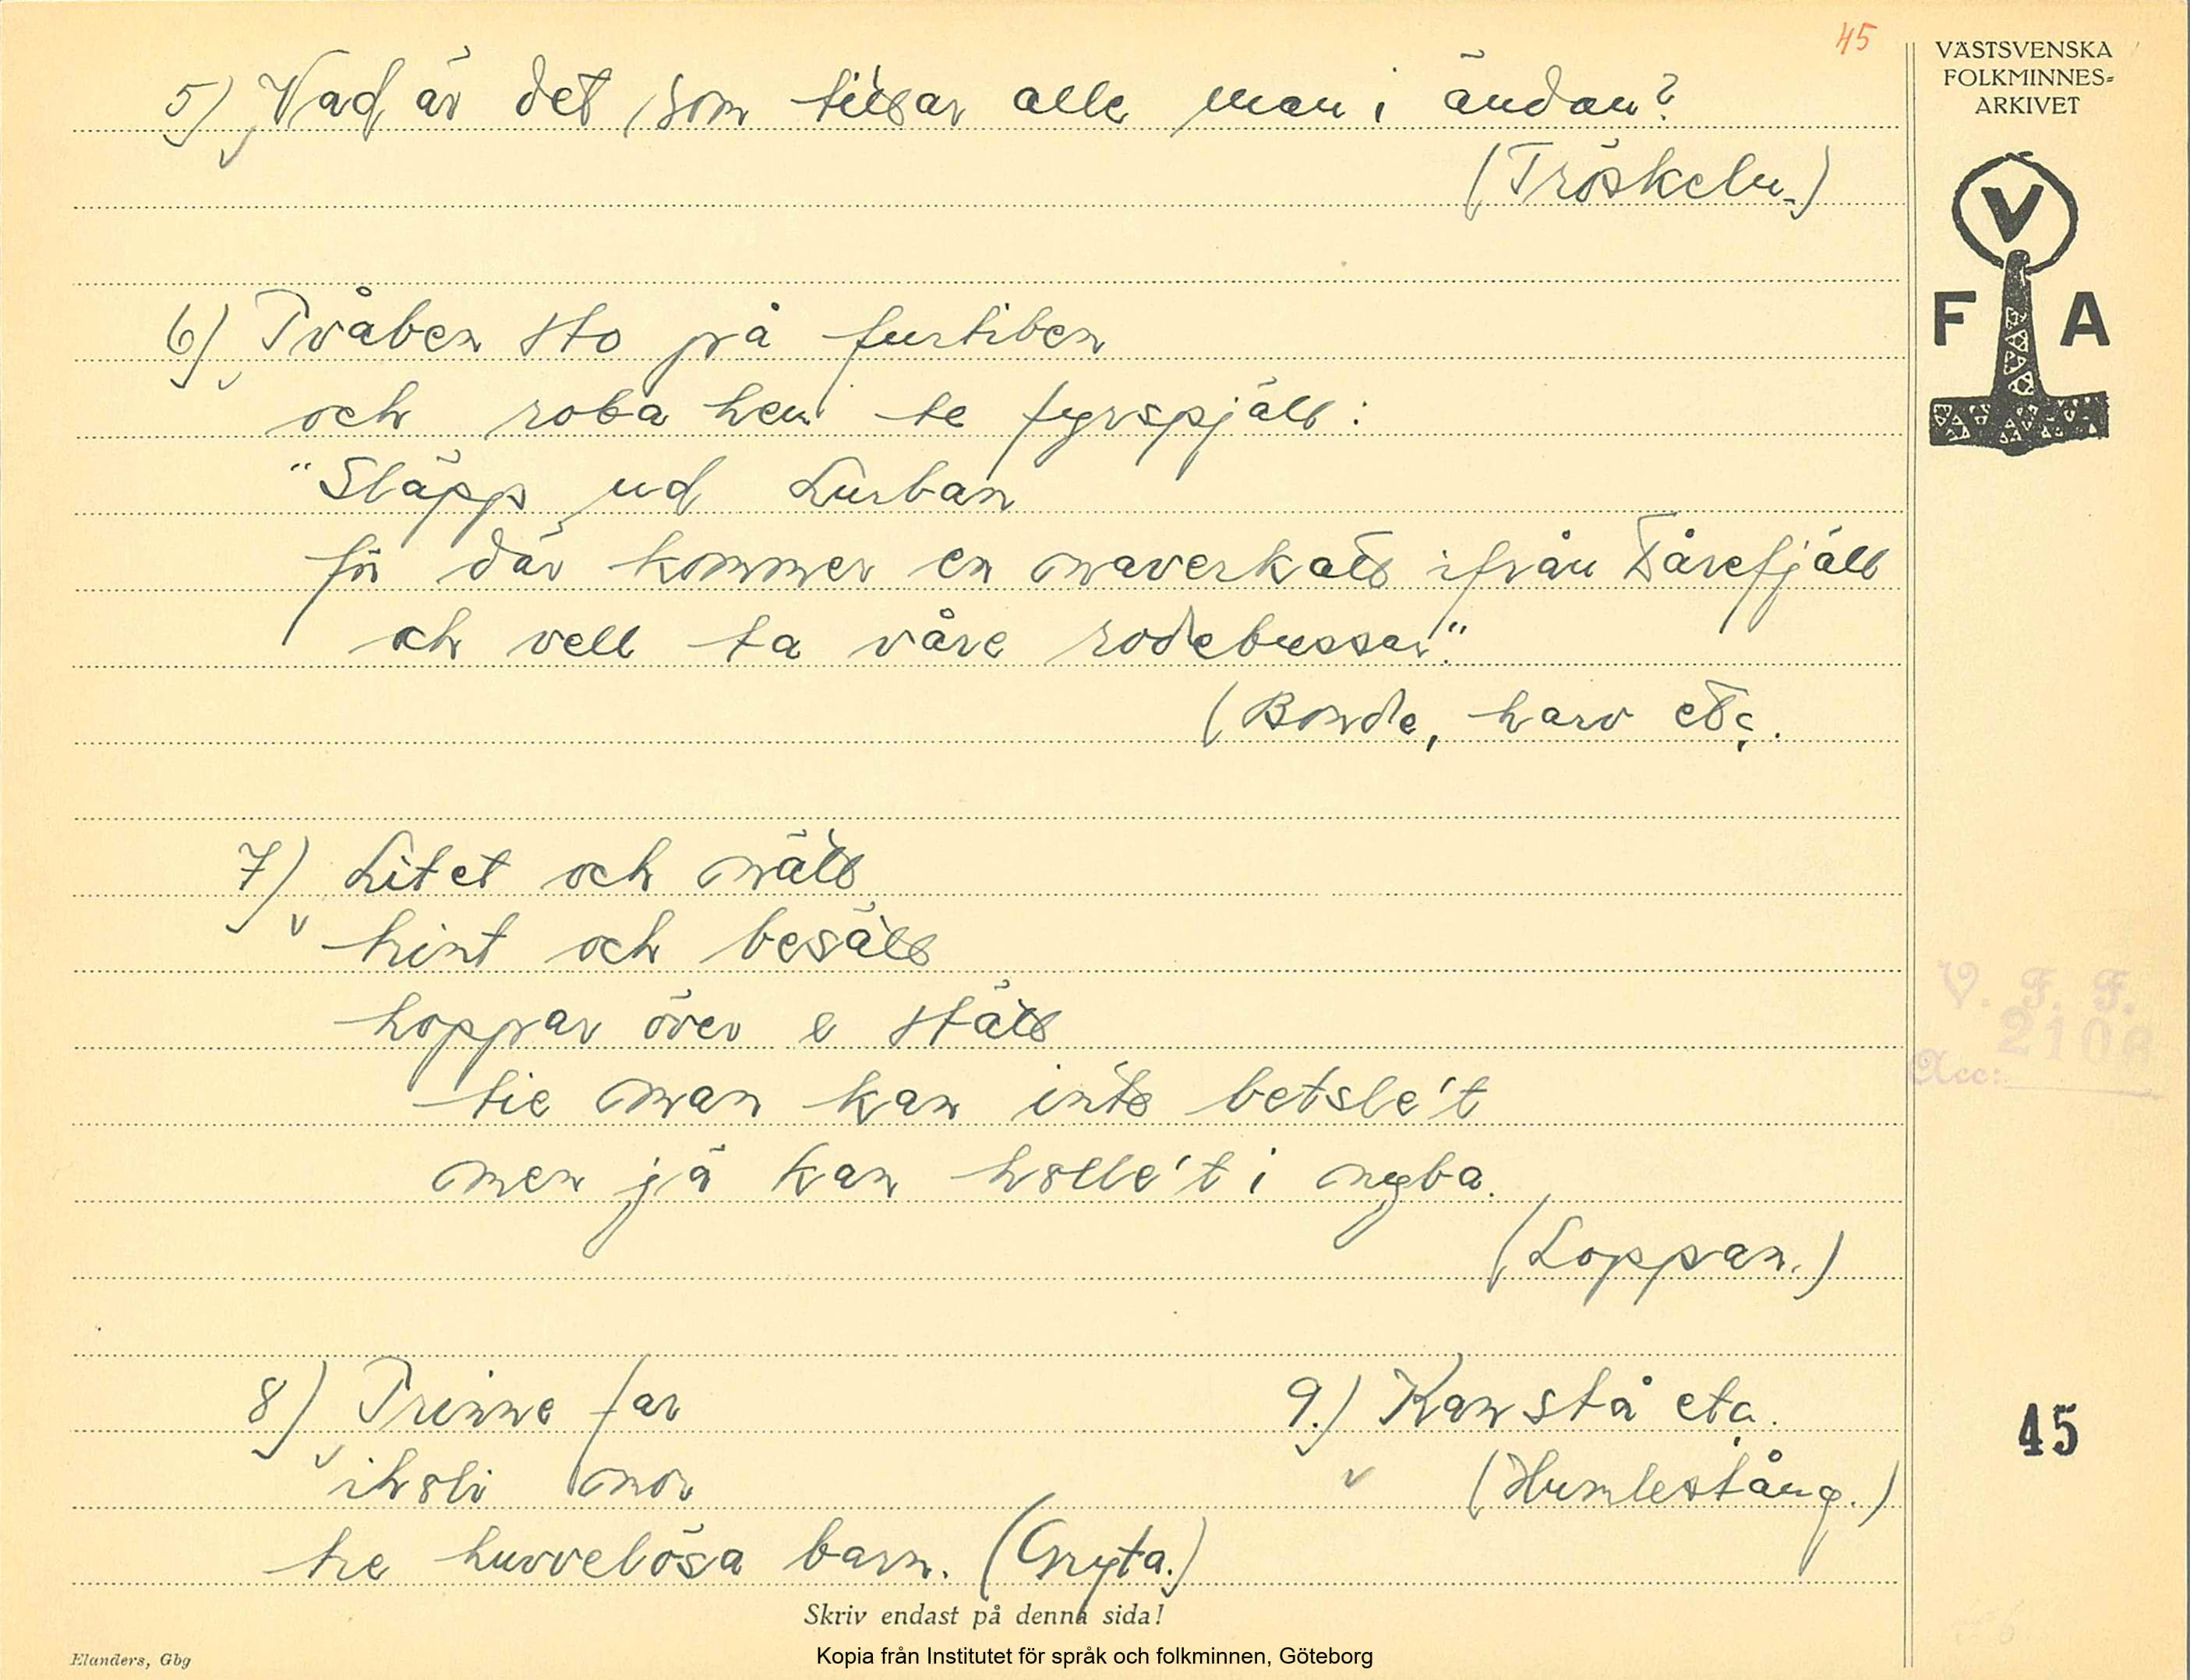 45
VÄSTSVENSKA
FOLKMINNES=
ARKIVET
V
F A
5) Vad är det som tittar alle man i ändan?
(Tröskeln.)
6) Tvåben sto på furtiben
och roba hen te fyrspjäll:
"Släpp ud Lurban
för där kommer en naverkatt ifrån Tårefjäll
och vell ta våre rodebussar."
(Bonde, harv etc.
7) Litet och nätt
hint och besätt
hoppar över e stätt
tie man kan inte betsle't
men jä kan holle't i nyba.
(Loppan.)
V. F. F.
2108
Acc:
8) Trinne far
iholi mor
tre huvvelösa barn. (Gryta.)
9.) Kan stå eta.
(Humlestång.)
45
Skriv endast på denna sida!
Elanders, Gbg
Kopia från Institutet för språk och folkminnen, Göteborg